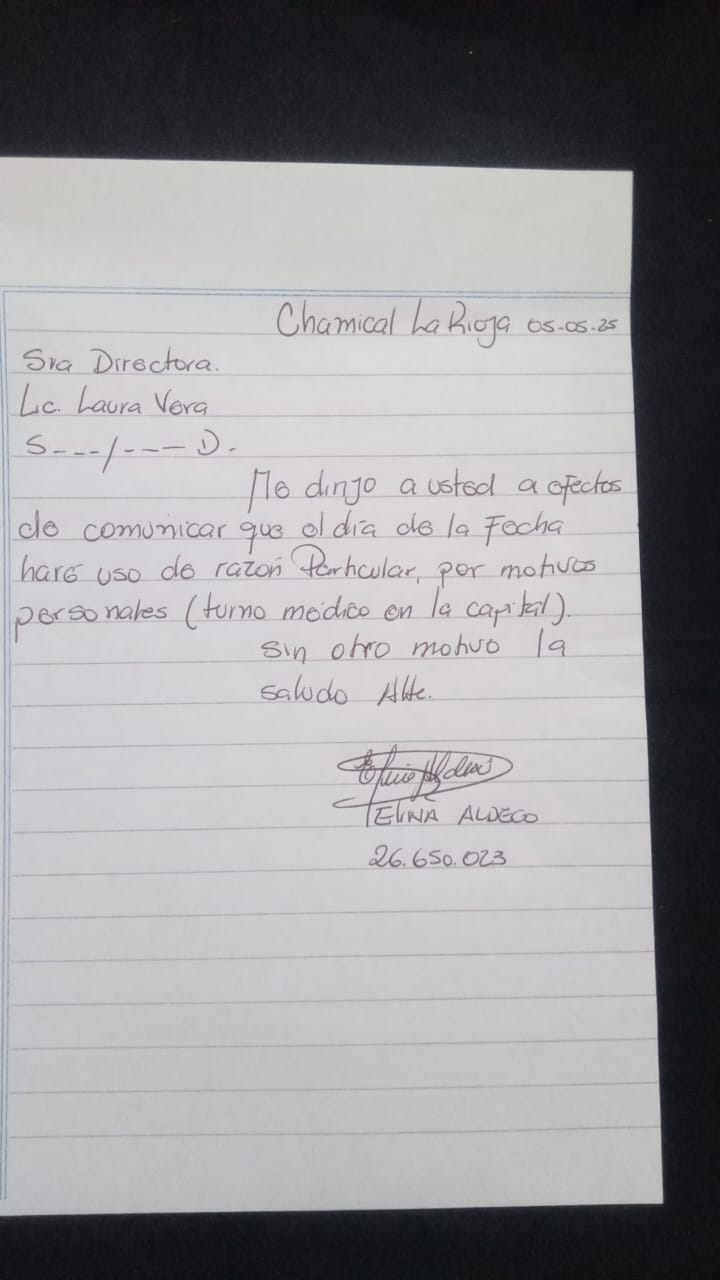 Chamical La Rioja 05-05-25
Sra Directora.
Lic. Laura Vera
S---/---- D.
Me dirijo a usted a efectos
de comunicar que el día de la Fecha
haré uso de razón Particular, por motivos
personales (turno médico en la capital).
sin otro motivo la
saludo Atte.
ELINA ALDECO
26.650.023